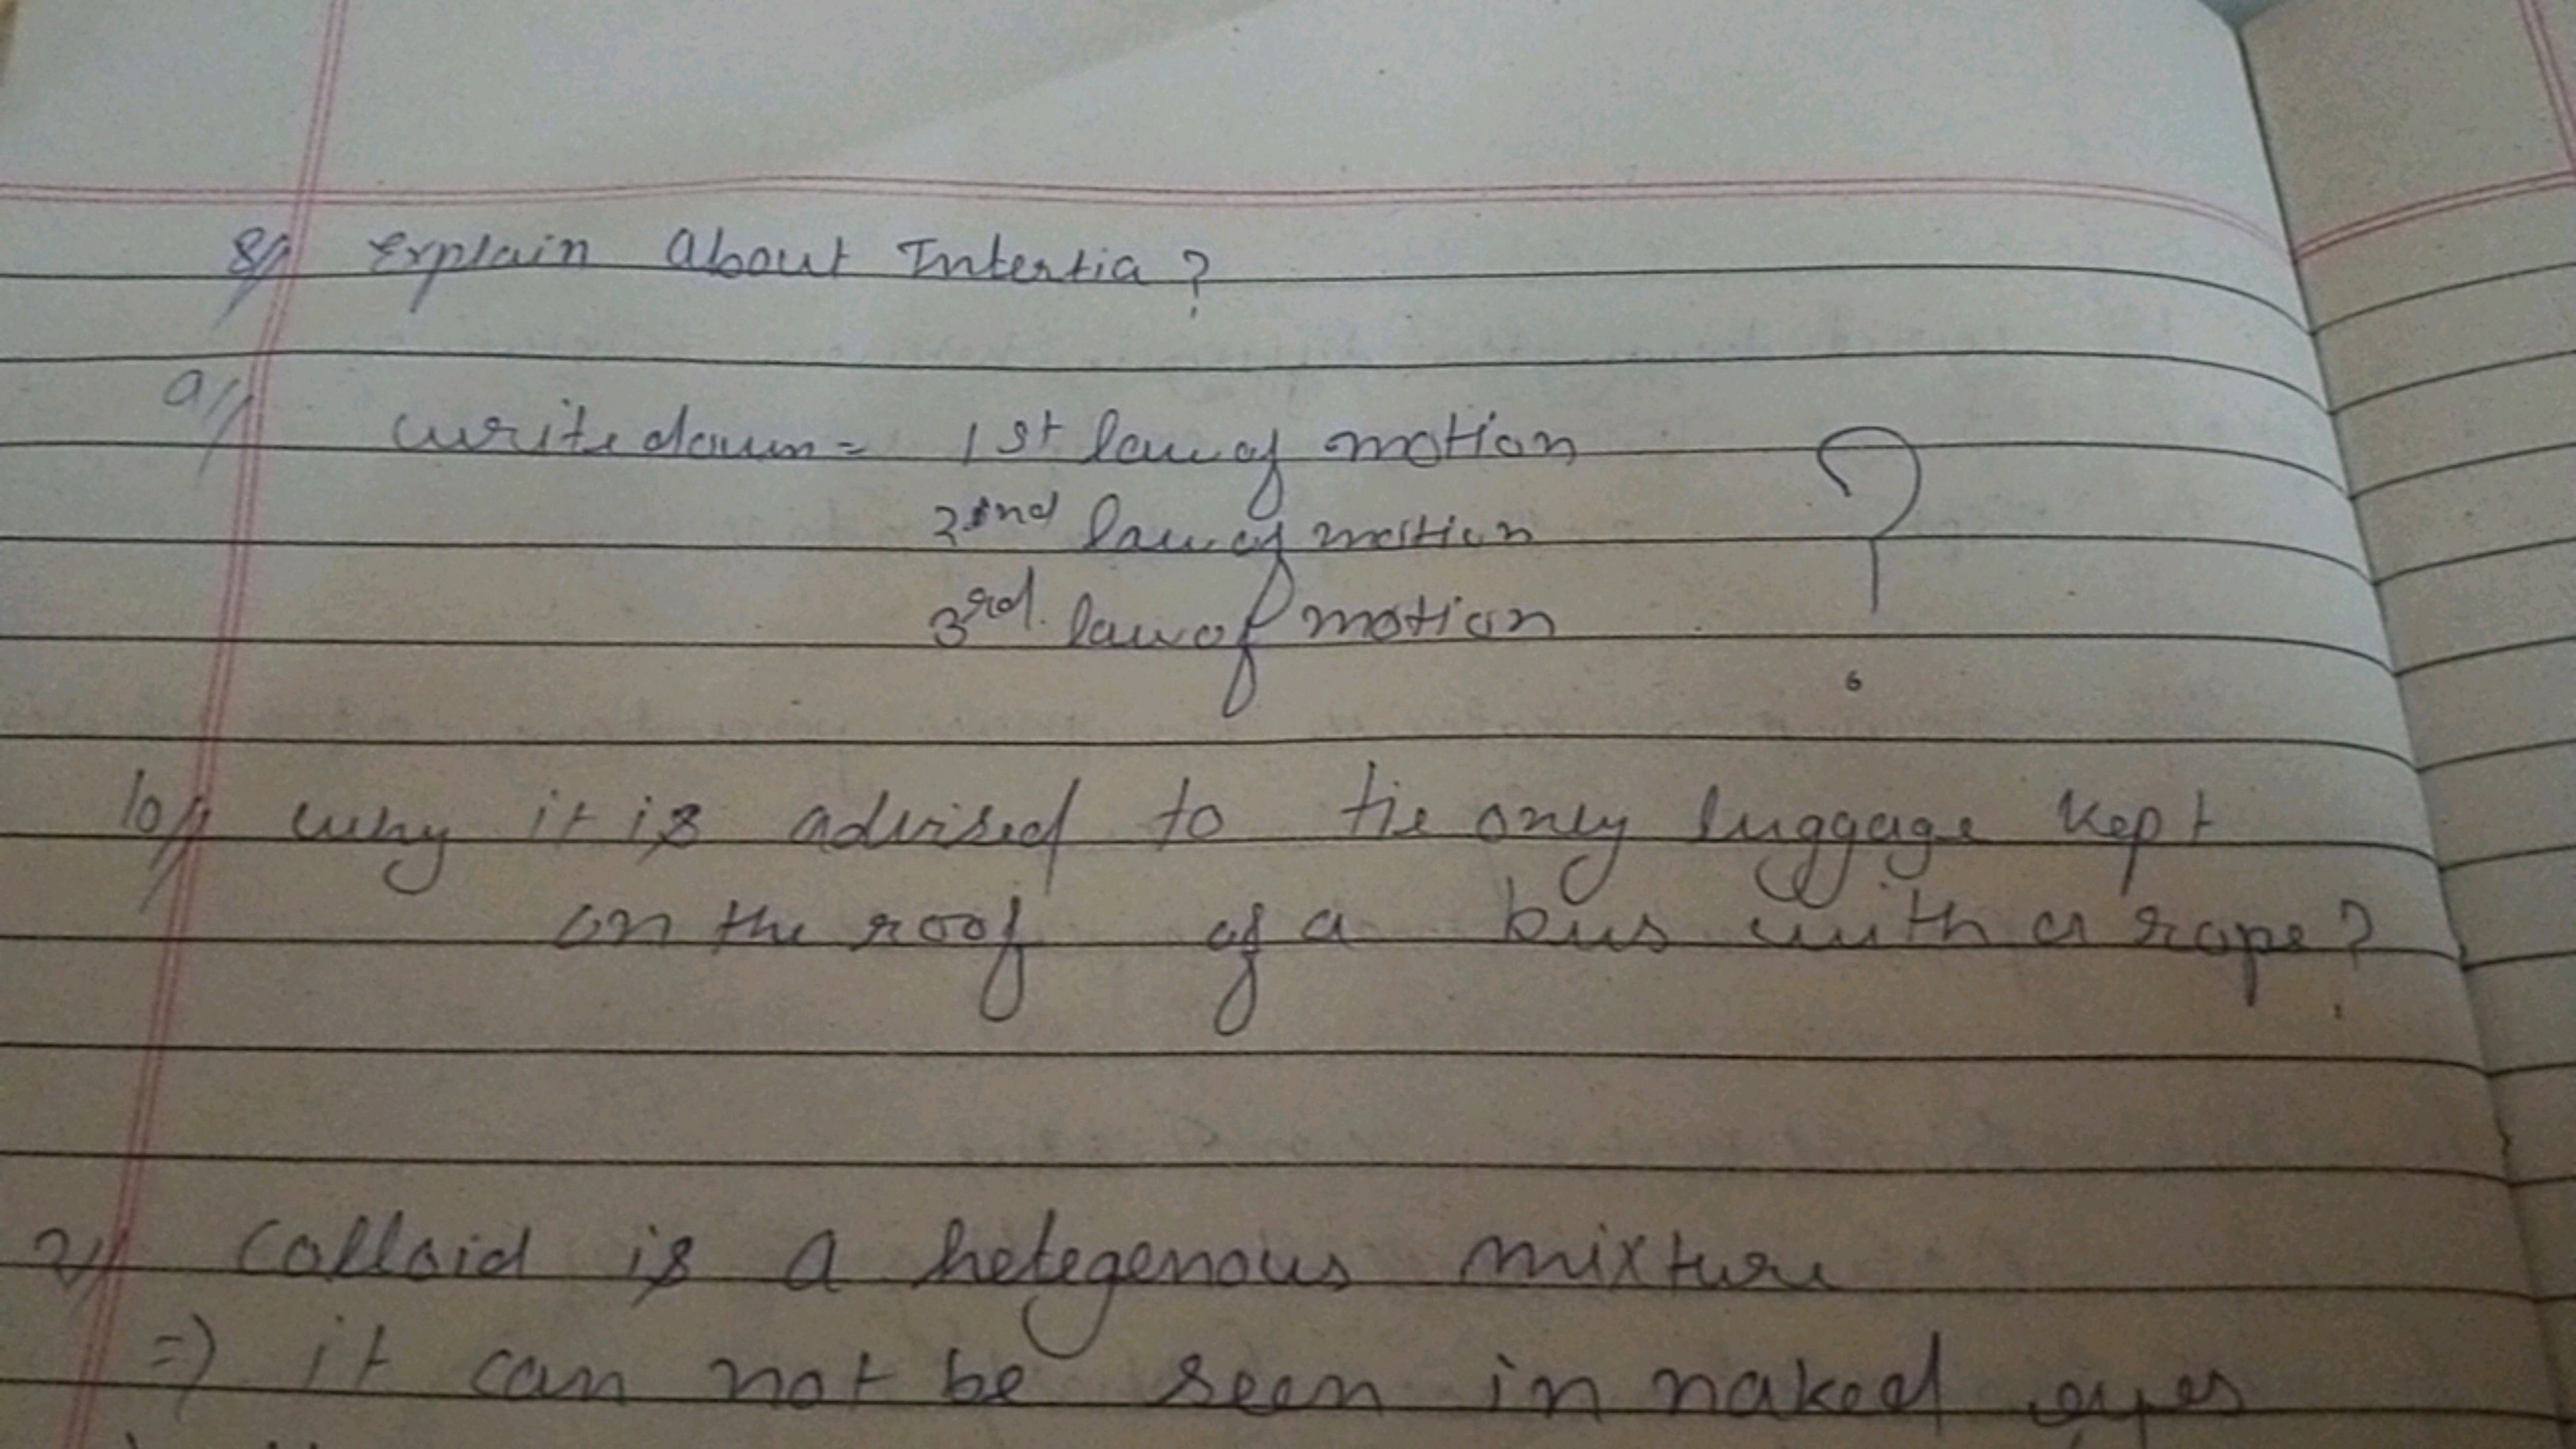 8) Explain About Intertia?
9) write down = 1st law of motion
2nd law of motion
3rd. law of motion
?
10) why it is advised to tie only luggage kept
on the roof of a bus with a rope?
2) Colloid is a hetegenous mixture
=) it can not be seen in naked eyes